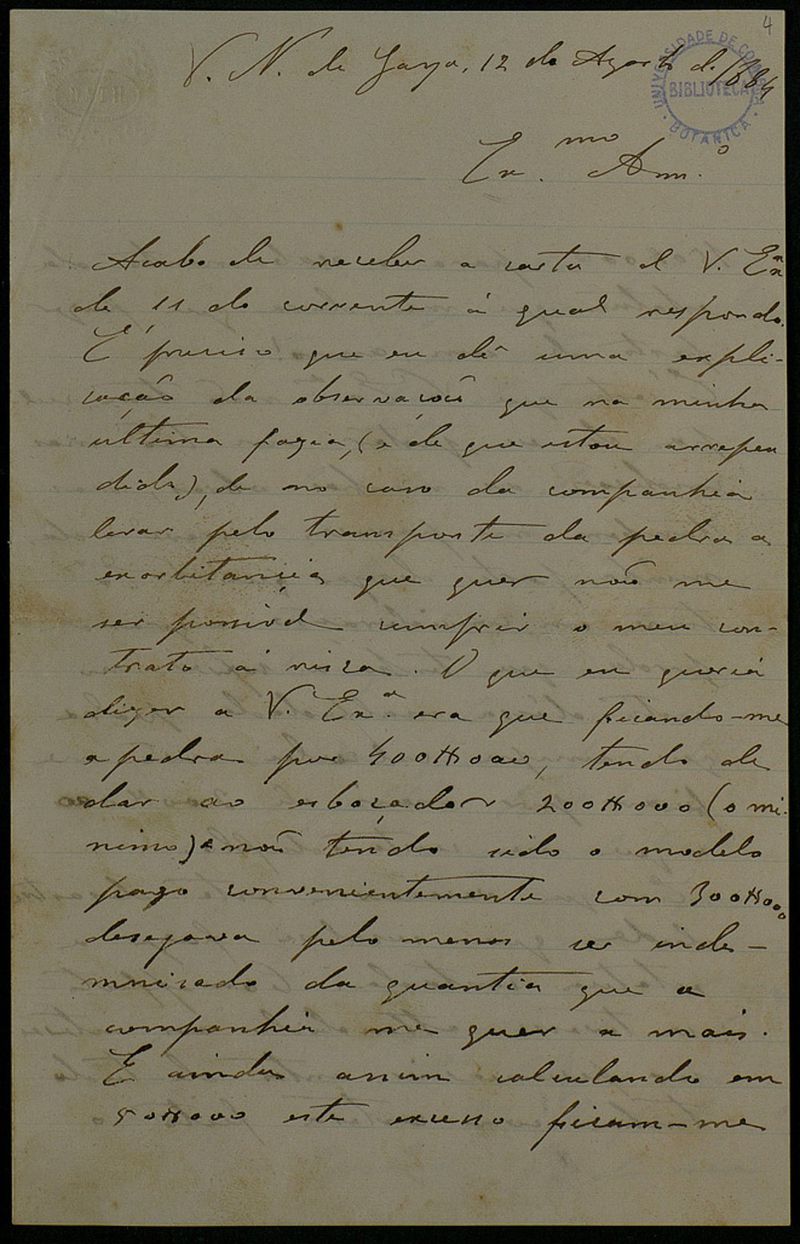 4
V. N. de Gaya, 12 de Agosto de 1884
UNIVERSIDADE DE COIMBRA
BIBLIOTECA
BOTANICA
Ex.mo Am.o
Acabo de receber a carta de V. Exa
de 11 do corrente á qual respondo.
É preciso que eu dê uma expli-
cação da observação que na minha
última fazia, (e de que estou arrepen
dido), de no caso da companhia
levar pelo transporte da pedra a
exorbitancia que quer não me
ser possivel cumprir o meu con-
trato á risca. O que eu queria
dizer a V. Ex.a era que ficando-me
a pedra por 400#000, tendo de
dar ao esboçador 200#000 (o mi-
nimo) e não tendo sido o modelo
pago convenientemente com 300#000
desejava pelo menos ser inde-
mnisado da quantia que a
companhia me quer a mais.
E ainda assim calculando em
50#000 este excesso ficam-me